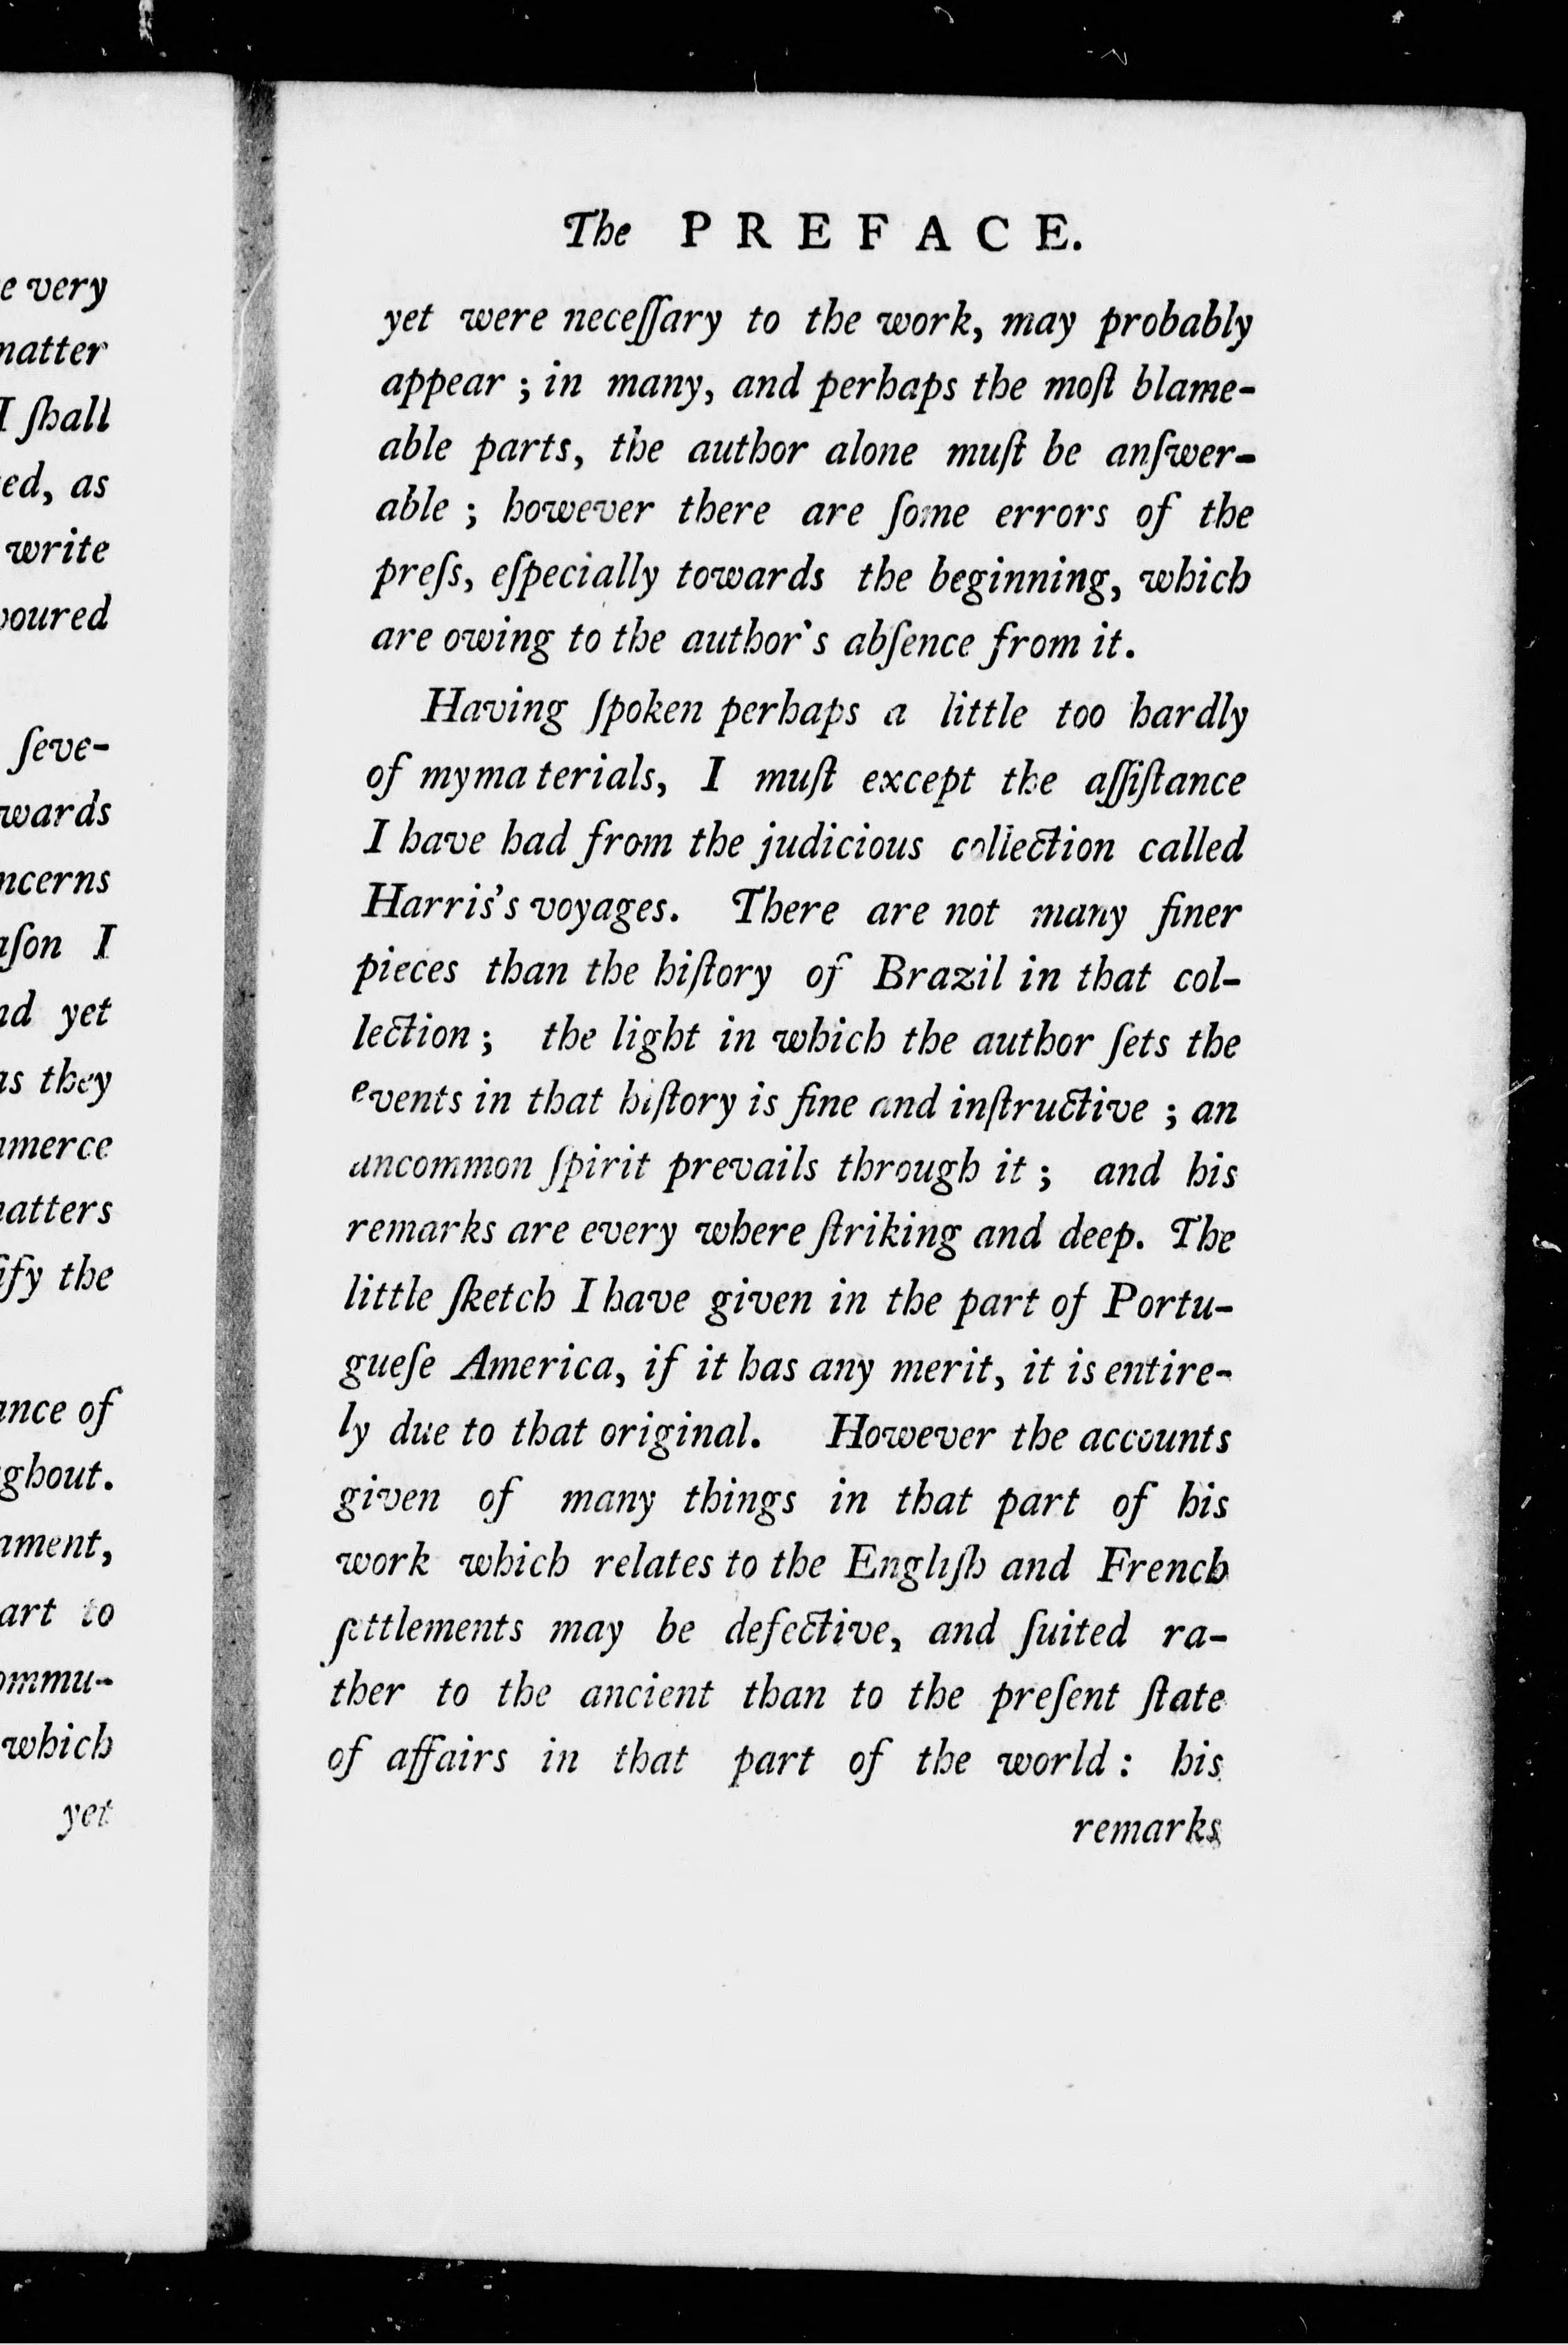 e very
matter
I ſhall
ed, as
write
voured
ſeve-
wards
ncerns
aſon I
nd yet
as they
mmerce
natters
ify the
ance of
ghout.
ament,
art to
ommu-
which
yet
The PREFACE.
yet were neceſſary to the work, may probably
appear ; in many, and perhaps the moſt blame-
able parts, the author alone muſt be anſwer-
able ; however there are ſome errors of the
preſs, eſpecially towards the beginning, which
are owing to the author's abſence from it.
Having ſpoken perhaps a little too hardly
of myma terials, I muſt except the aſſiſtance
I have had from the judicious collection called
Harris's voyages. There are not many finer
pieces than the hiſtory of Brazil in that col-
lection ; the light in which the author ſets the
events in that hiſtory is fine and inſtructive ; an
uncommon ſpirit prevails through it ; and his
remarks are every where ſtriking and deep. The
little ſketch I have given in the part of Portu-
gueſe America, if it has any merit, it is entire-
ly due to that original. However the accounts
given of many things in that part of his
work which relates to the Engliſh and French
ſettlements may be defective, and ſuited ra-
ther to the ancient than to the preſent ſtate
of affairs in that part of the world : his
remarks